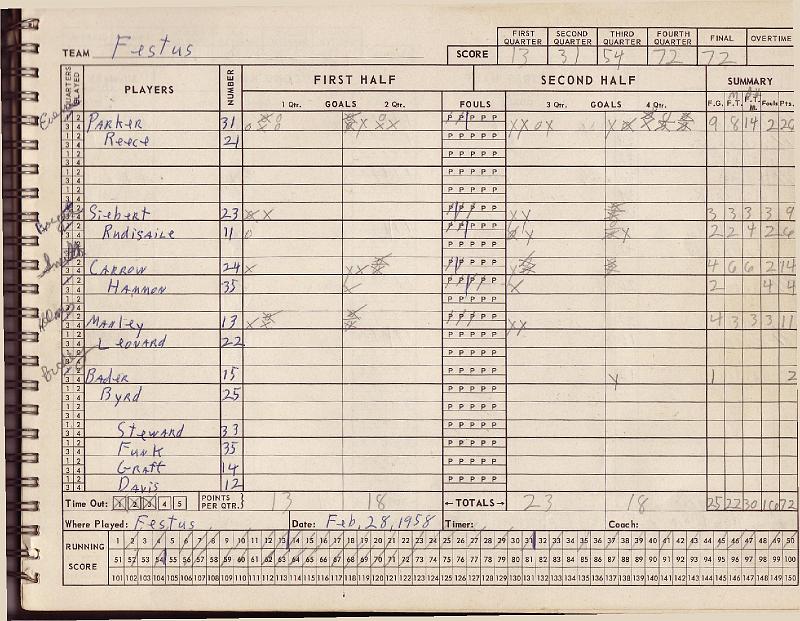 FIRST QUARTER SECOND QUARTER THIRD QUARTER FOURTH QUARTER FINAL OVERTIME
TEAM Festus SCORE 13 31 54 72 72
QUARTERS PLAYED PLAYERS NUMBER FIRST HALF SECOND HALF SUMMARY
1 Qtr. GOALS 2 Qtr. FOULS 3 Qtr. GOALS 4 Qtr. F.G. F.T. F.T. M. Fouls Pts.
PARKER 31 P P P P P 9 8 14 2 26
Reece 21 P P P P P
P P P P P
P P P P P
P P P P P
Siebert 23 P P P P P 3 3 3 3 9
Rudisaile 11 P P P P P 2 2 4 2 6
P P P P P
CARROW 24 P P P P P 4 6 6 2 14
HAMMON 35 P P P P P 2 4 4
P P P P P
MANLEY 13 P P P P P 4 3 3 3 11
LEONARD 22 P P P P P
P P P P P
BADER 15 P P P P P 1 2
BYRD 25 P P P P P
P P P P P
STEWARD 33 P P P P P
FUNK 35 P P P P P
GRATT 14 P P P P P
DAVIS 12 P P P P P
Time Out: 1 2 3 4 5 POINTS PER QTR. 13 18 ←TOTALS→ 23 18 25 22 30 16 72
Where Played: Festus Date: Feb, 28, 1958 Timer: Coach:
RUNNING SCORE
1 2 3 4 5 6 7 8 9 10 11 12 13 14 15 16 17 18 19 20 21 22 23 24 25 26 27 28 29 30 31 32 33 34 35 36 37 38 39 40 41 42 43 44 45 46 47 48 49 50
51 52 53 54 55 56 57 58 59 60 61 62 63 64 65 66 67 68 69 70 71 72 73 74 75 76 77 78 79 80 81 82 83 84 85 86 87 88 89 90 91 92 93 94 95 96 97 98 99 100
101 102 103 104 105 106 107 108 109 110 111 112 113 114 115 116 117 118 119 120 121 122 123 124 125 126 127 128 129 130 131 132 133 134 135 136 137 138 139 140 141 142 143 144 145 146 147 148 149 150